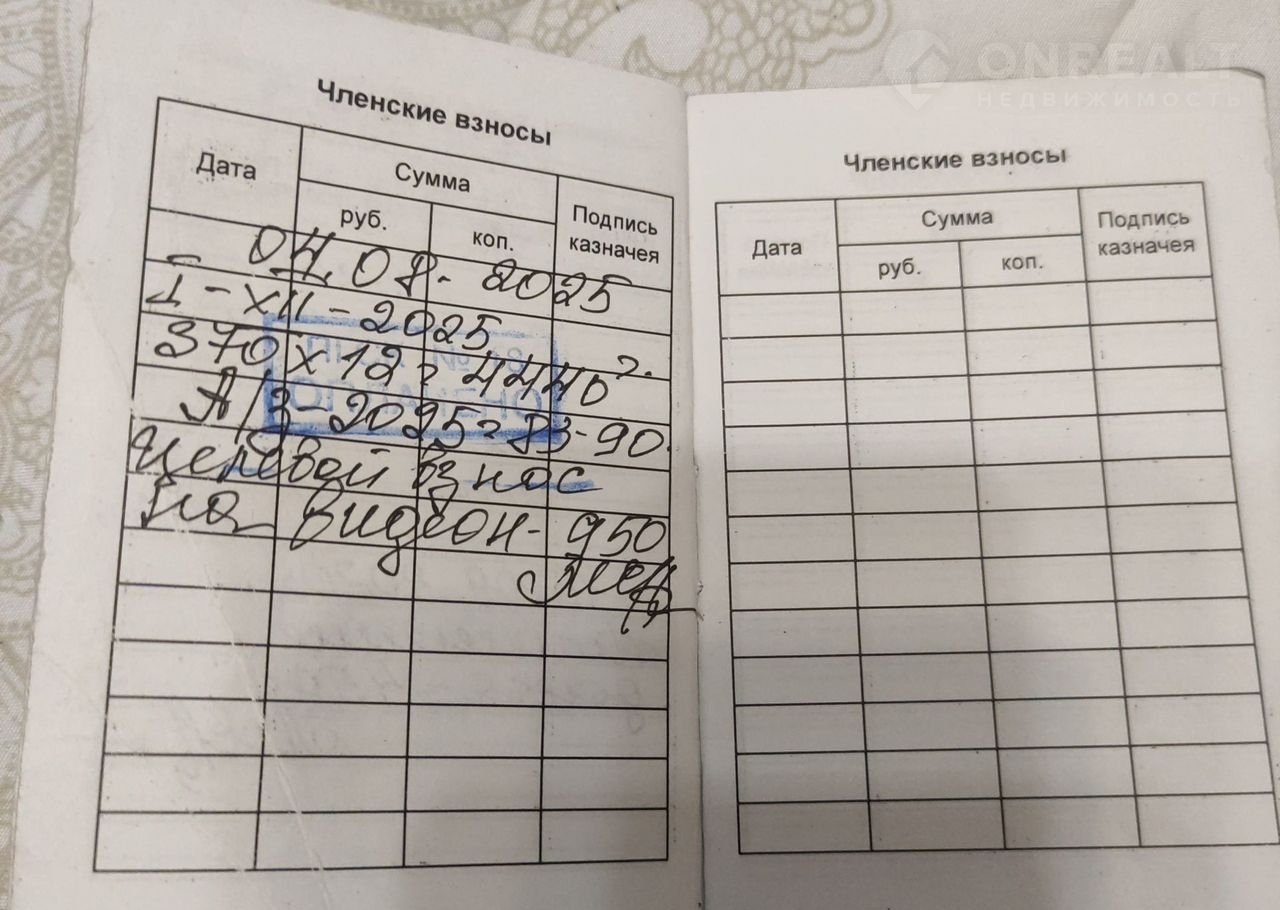 ONREALT
НЕДВИЖИМОСТЬ
Членские взносы
Дата
Сумма
Подпись казначея
руб.
коп.
04.08. 2025
I - XII - 2025
370 x 12 = 4440
А/з - 2025 = 83-90.
Целевой взнос
на видеон- 950
Членские взносы
Дата
Сумма
Подпись
казначея
руб.
коп.